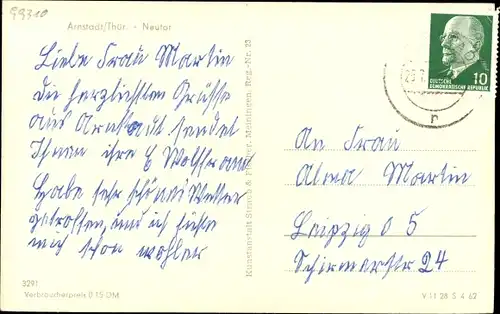 99310
Arnstadt/Thür. - Neutor
Liebe Frau Martin
die herzlichsten Grüsse
aus Arnstadt sendet
Ihnen ihre E Wolfram
Habe sehr schönes Wetter
getroffen, und ich fühle
mich schon wohler
3291
Verbraucherpreis 0 15 DM
Kunstanstalt Straub & Fischer, Meiningen, Reg.-Nr. 23
10
DEUTSCHE
DEMOKRATISCHE REPUBLIK
An Frau
Alma Martin
Leipzig O 5
Schirmerstr 24
V 11 28 S 4 62